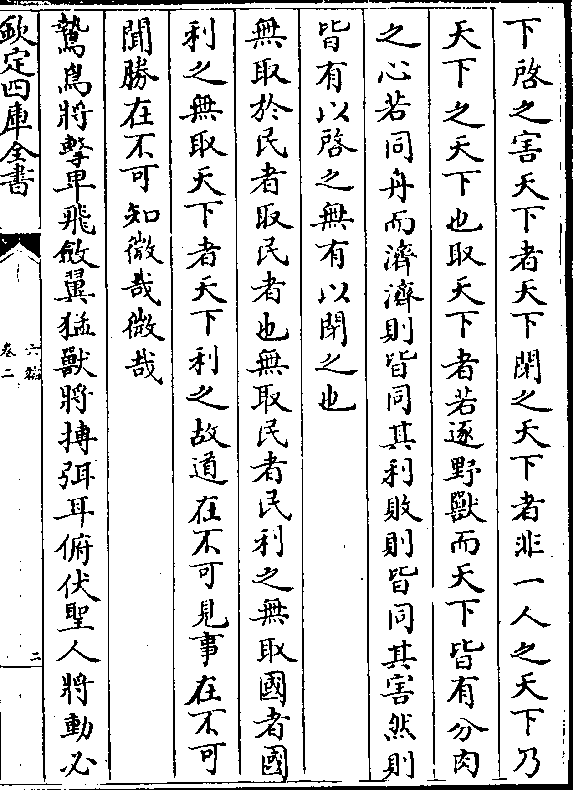 下啓之害天下者天下閉之天下者非一人之天下乃
天下之天下也取天下者若逐野獸而天下皆有分肉
之心若同舟而濟濟則皆同其利敗則皆同其害然則
皆有以啓之無有以閉之也
無取於民者取民者也無取民者民利之無取國者國
利之無取天下者天下利之故道在不可見事在不可
聞勝在不可知微哉微哉
鷙鳥將擊卑飛斂翼猛獸將搏弭耳俯伏聖人將動必
欽定四庫全書
六韜
卷二
二